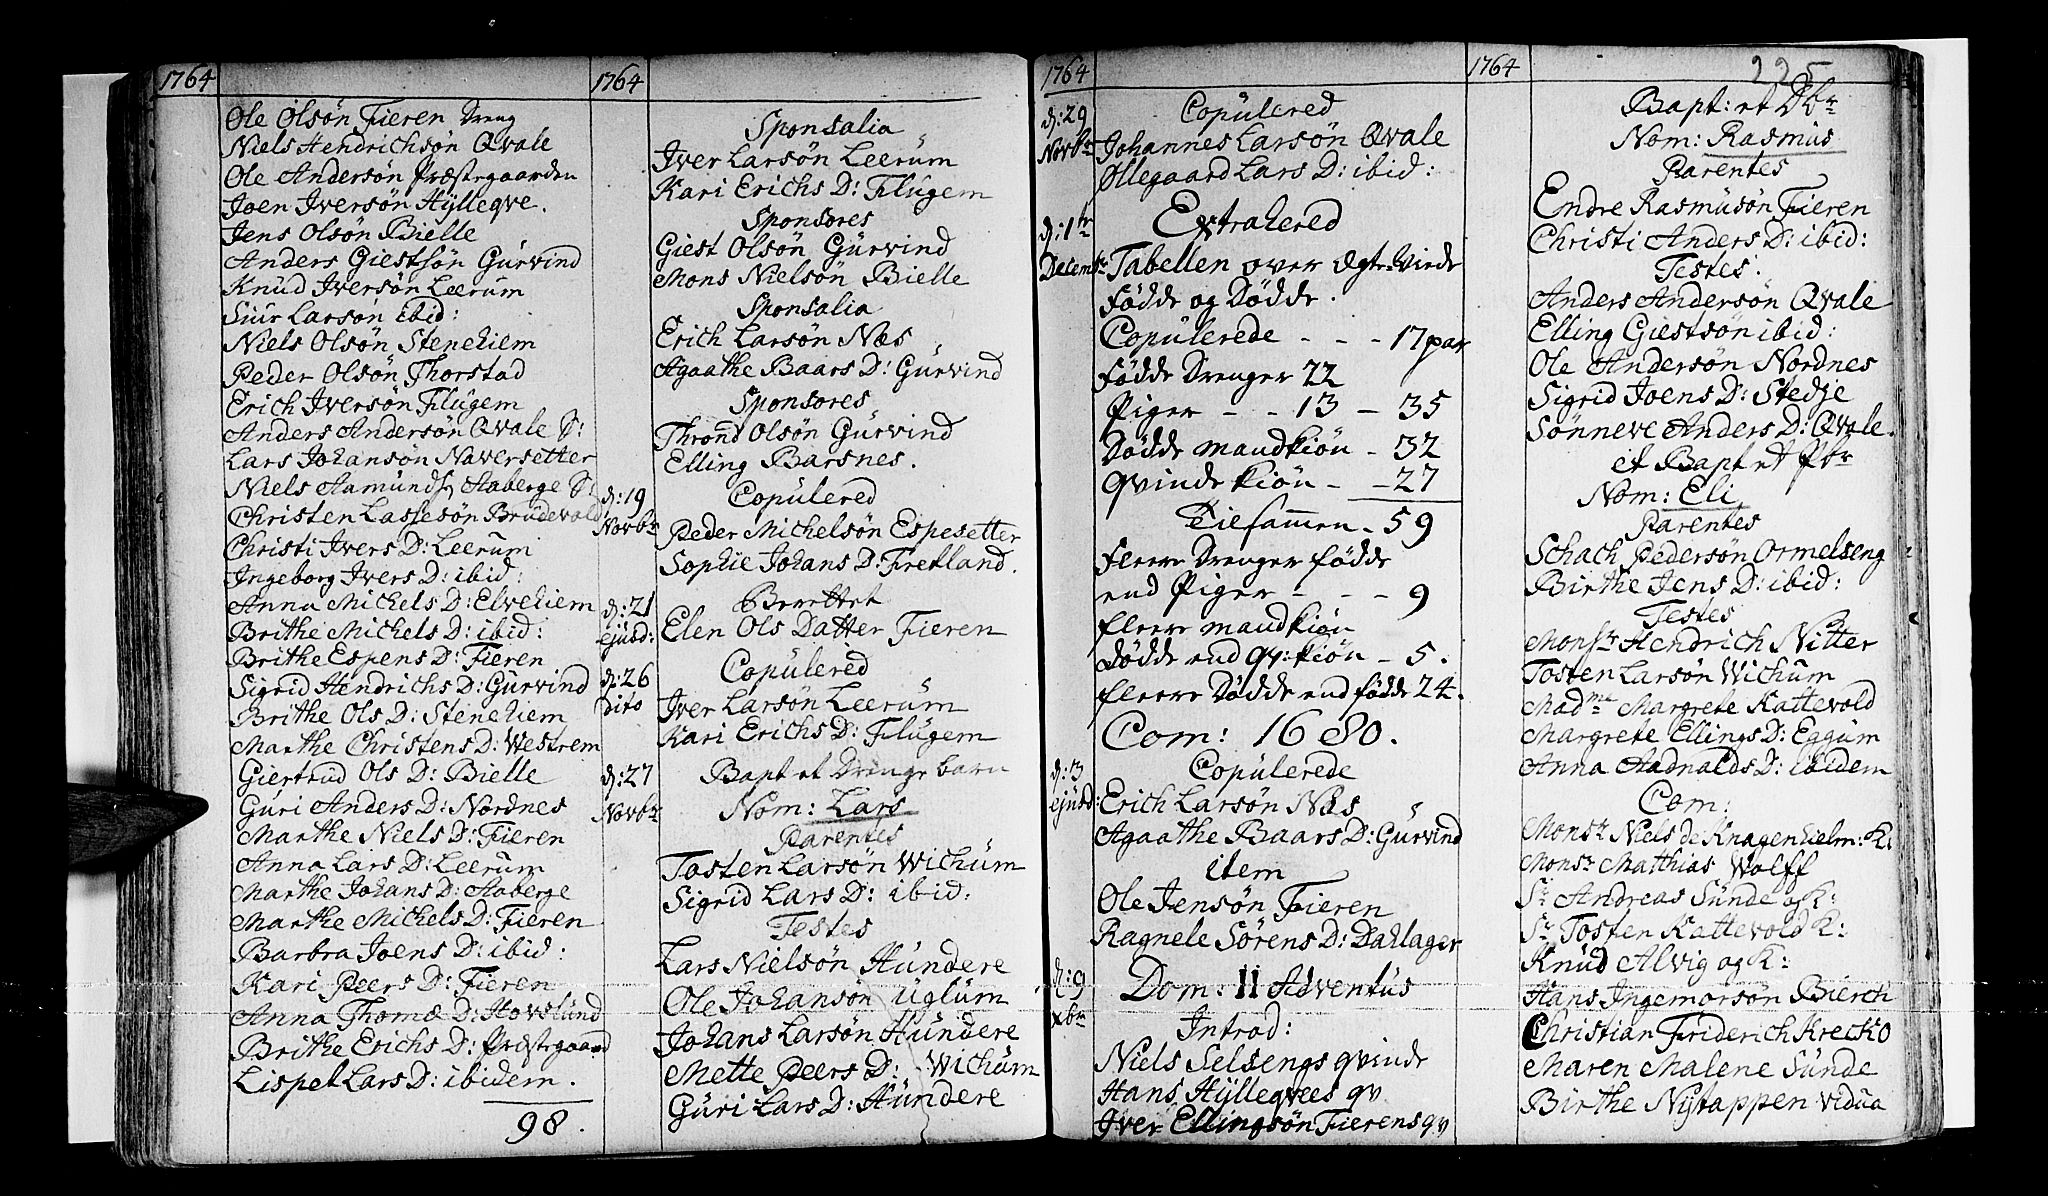 1764
Ole Olsön Fieren Dreng
Niels Hendrichsön Qvale
Ole Andersön Præstegaarden
Joen Iversön Hÿlleqve.
Jens Olsön Bielle
Anders Giestsön Gürvind
Knud Iversön Leerum
Siur Larsön ibid:
Niels Olsön Stenehiem
Peder Olsön Thorstad
Erich Iversön Flugem
Anders Andersön Qvale S:
Lars Johansön Naversetter
Niels Aamunds: Aaberge S:
Christen Lassesön Brudevold
Christi Ivers D: Leerum
Ingeborg Ivers D: ibid:
Anna Michels D: Elvehiem
Brithe Michels D: ibid:
Brithe Espens D: Fieren
Sigrid Hendrichs D: Gurvind
Brithe Ols D: Stenehiem
Marthe Christens D: Westrem
Giertrud Ols D: Bielle
Güri Anders D: Nordnes
Marthe Niels D: Fieren
Anna Lars D: Leerum
Marthe Johans D: Aaberge
Marthe Michels D: Fieren
Barbra Joens D: ibid:
Kari Peers D: Fieren
Anna Thomæ D: Hovslund
Brithe Erichs D: Præstegaard
Lispet Lars D: ibidem.
98.
1764
Sponsalia
Iver Larsön Leerüm
Kari Erichs D: Flügem
Sponsores
Giest Olsön Gürvind
Mons Nielsön Bielle
Sponsalia
Erich Larsön Næs
Agaathe Baars D: Gürvind
Sponsores
Thrond Olsön Gürvind
Elling Barsnes.
d: 19 Novbr
Copülered
Peder Michelsön Espesetter
Sophie Johans D: Fretland.
d: 21 ejusd:
Berettet
Elen Ols Datter Fieren
d: 26 dito
Copülered
Iver Larsön Leerüm
Kari Erichs D: Flügem
d: 27 Novbr
Bapt et Drenge barn
Nom: Lars
Parentes
Tosten Larsön Wichüm
Sigrid Lars D: ibid:
Testes
Lars Nielsön Hündere
Ole Johansön Uglüm
Johans Larsön Hündere
Mette Peers D: Wichüm
Güri Lars D: Hündere
1764
d: 29 Novbr
Copülered
Johannes Larsön Qvale
Ollegaard Lars D: ibid:
d: 1tr Decembr
Extrahered
Tabellen over Egte-Viede
fødde og Dødde.
Copülerede - - - 17 par
fødde Drenger 22
Piger - - 13 - 35
Dødde mandkiön - 32
qvindekiön - - 27
Tilsammen - 59
fleere Drenger fødde
end Piger - - - 9
fleere mandkiön
dødde end qv:kiön - 5.
fleere Dødde end fødde 24.
Com: 1680.
d: 3 ejusd:
Copülerede
Erich Larsön Næs
Agaathe Baars D: Gürvind
item
Ole Jensön Fieren
Ragnele Sörens D: Dahlager
d: 9 xbr
Dom: II Adventus
Introd:
Niels Selsengs qvinde
Hans Hÿlleqvees qv
Iver Ellingsön Fierens qv
1764
225
Bapt: et Dbr
Nom: Rasmüs
Parentes
Endre Rasmüsön Fieren
Christi Anders D: ibid:
Testes.
Anders Andersön Qvale
Elling Giestsön ibid:
Ole Andersön Nordnes
Sigrid Joens D: Stedje
Sönneve Anders D: Qvale.
et Bapt et Pbr
Nom: Eli
Parentes
Schach Pedersön Ormelseng
Birthe Jens D: ibid:
Testes
Monsr Hendrich Nitter
Tosten Larsön Wichum
Madme Margrete Kattevold
Margrete Ellings D: Eggum
Anna Aadnalds D: ibidem
Com:
Monsr Niels de Knagenhielm: K:
Monsr Matthias Wolff
Sr Andreas Sünde og K:
Sr Tosten Kattevold K:
Knud Alvig og K:
Hans Ingemorsön Bierch
Christian Friderich Krecko
Maren Malene Sünde
Birthe Nÿtappen vidua